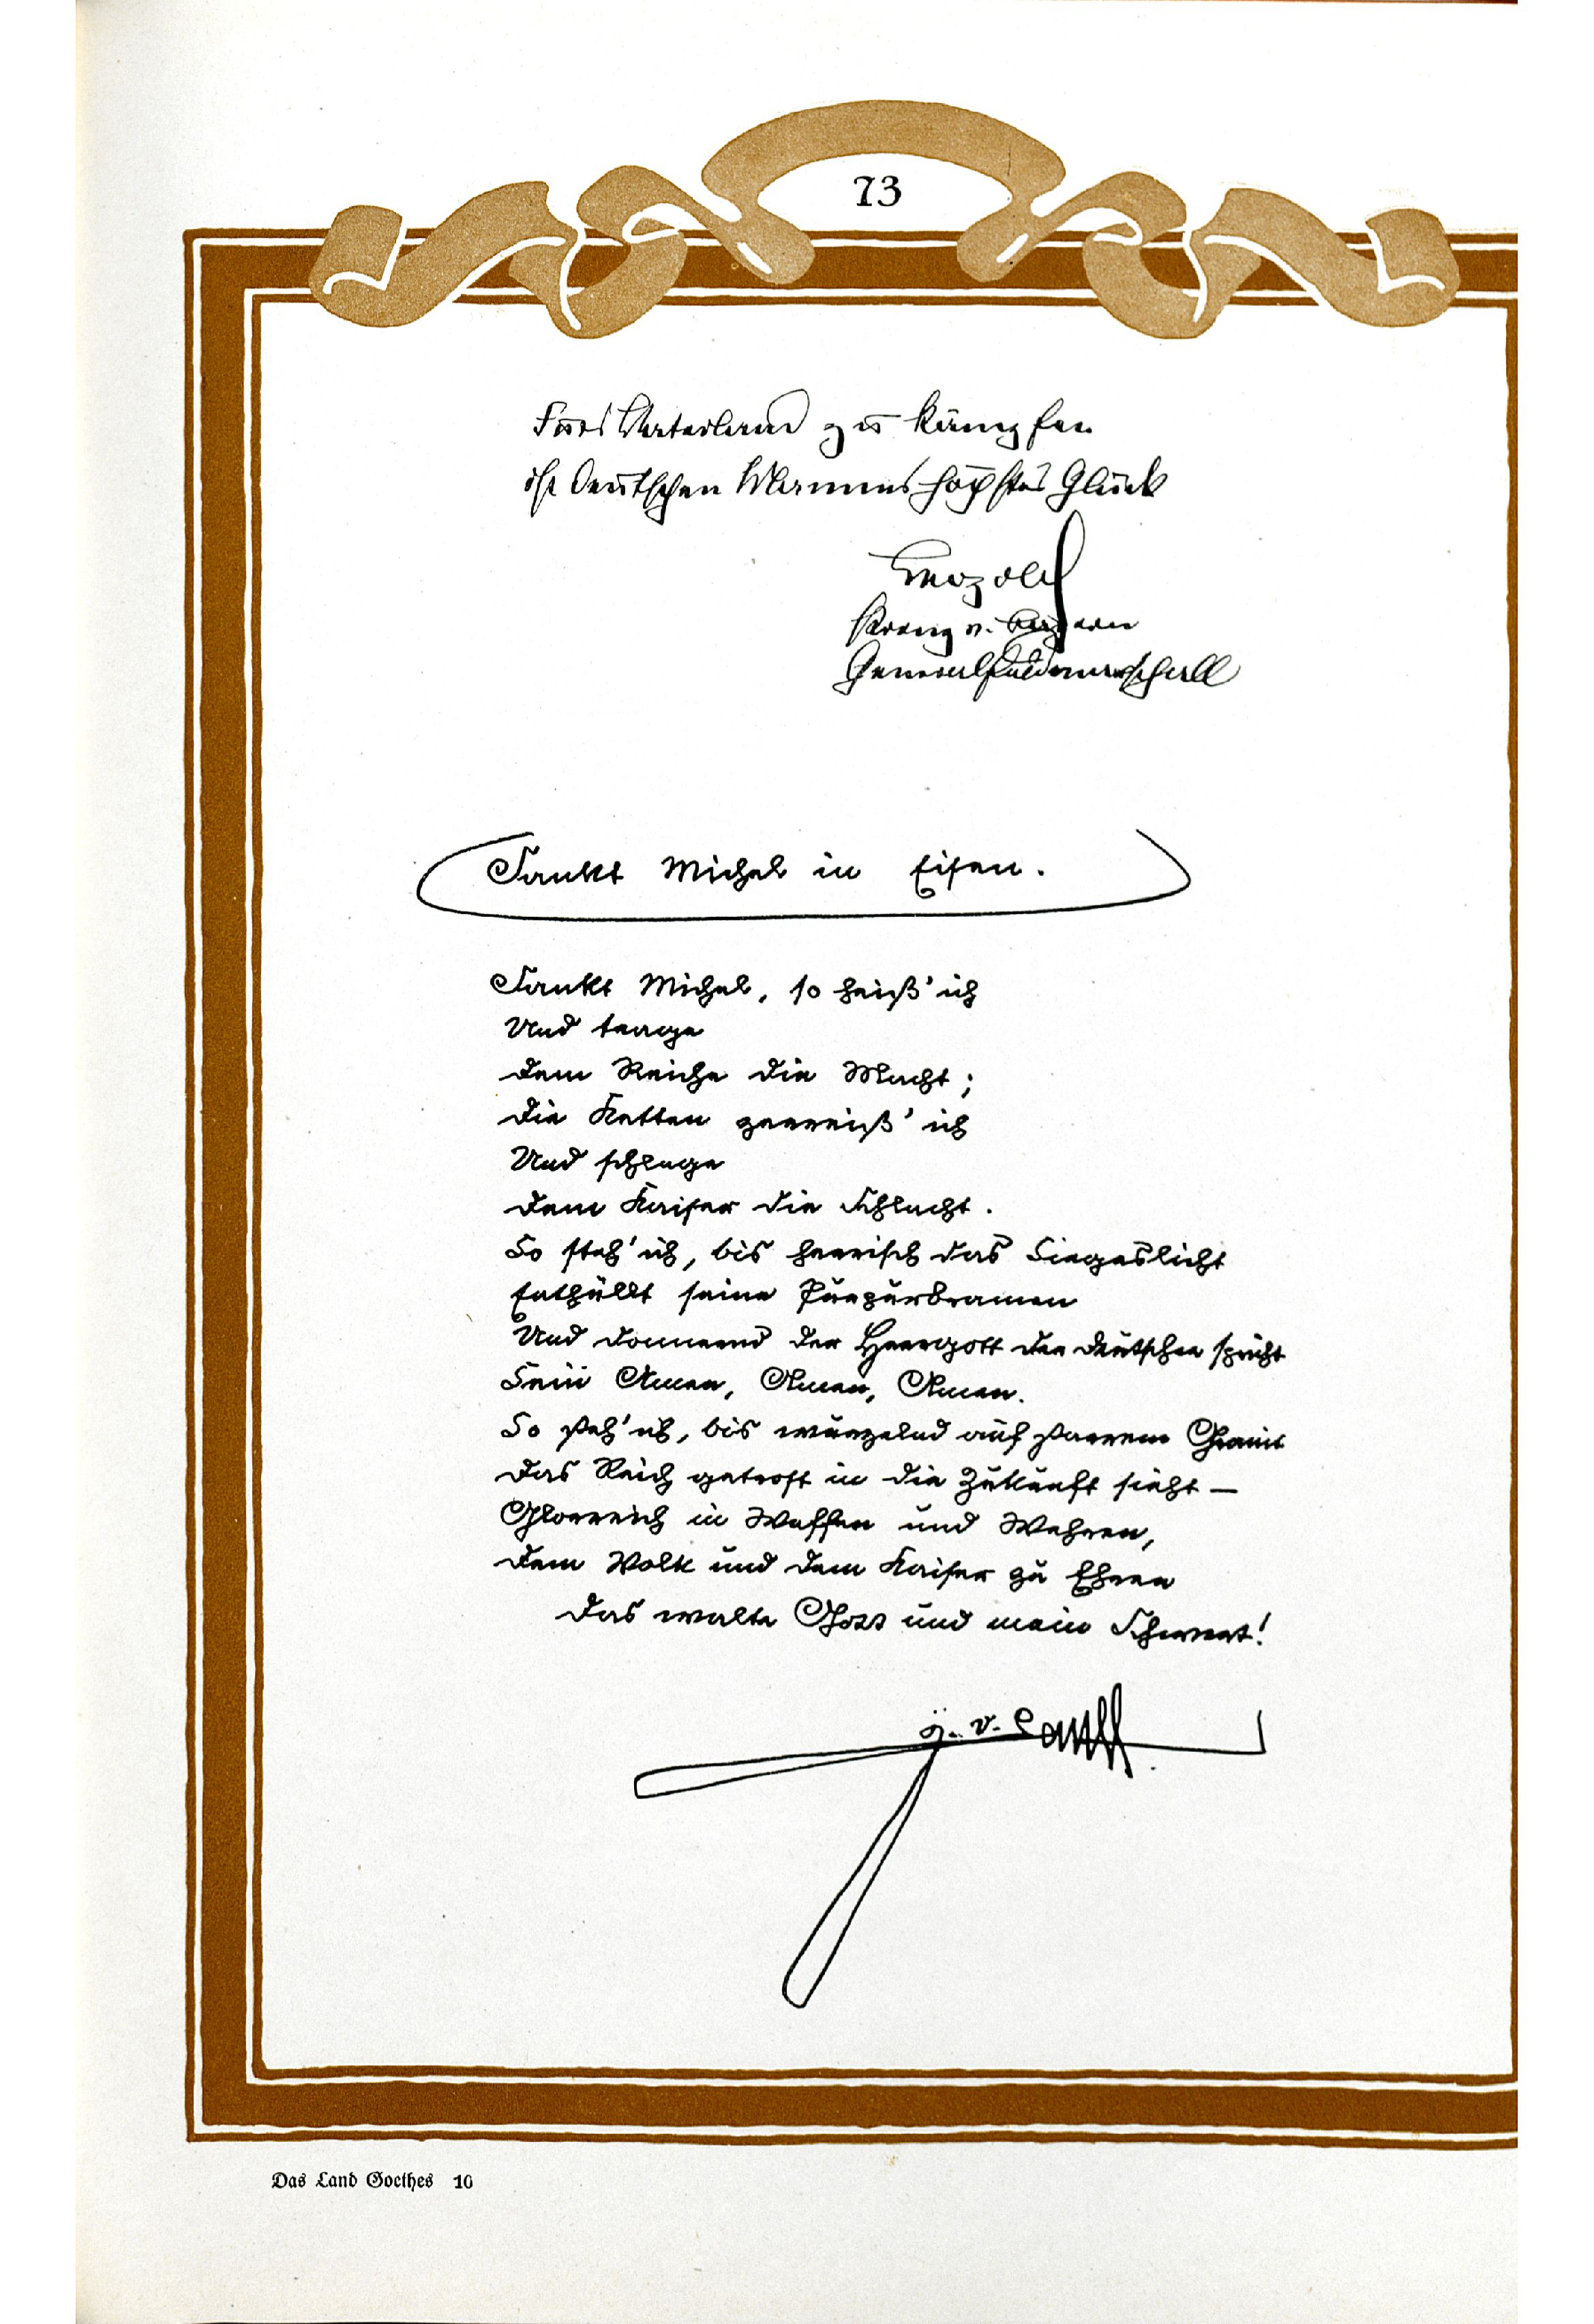 73
Fürs Vaterland zu kämpfen
ist deutschen Mannes höchstes Glück
Leopold
Prinz v. Bayern
Generalfeldmarschall
Sankt Michel in Eisen.
Sankt Michel, so heiß' ich
Und trage
Dem Reiche die Macht;
Die Ketten zerreiß' ich
Und schlage
Dem Kaiser die Schlacht.
So steh' ich, bis herrisch das Siegeslicht
Enthüllt seine Purpurbramen
Und donnernd der Herrgott der Deutschen spricht
Sein Amen, Amen, Amen.
So steh' ich, bis wurzelnd auf starrem Granit
Das Reich getrost in die Zukunft sieht —
Glorreich in Waffen und Wehren,
Dem Volk und dem Kaiser zu Ehren
Das walte Gott und mein Schwert!
J. v. Lauff.
Das Land Goethes 10